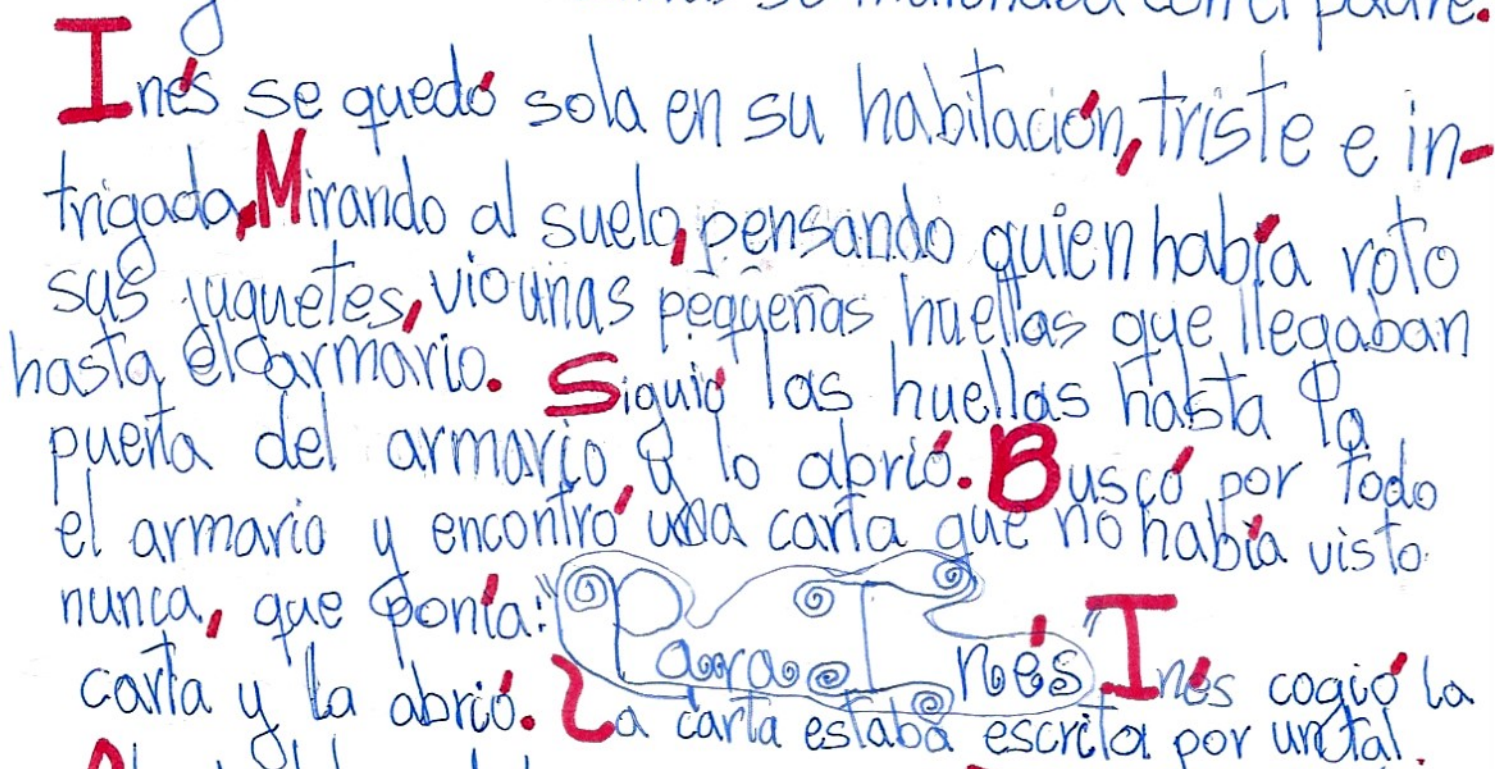 con el padre.
Inés se quedó sola en su habitación, triste e in-
trigada. Mirando al suelo, pensando quien había roto
sus juguetes, vio unas pequeñas huellas que llegaban
hasta el armario. Siguió las huellas hasta la
puerta del armario y lo abrió. Buscó por todo
el armario y encontró una carta que no había visto
nunca, que ponía: "Para Inés" Inés cogió la
carta y la abrió. La carta estaba escrita por un tal.